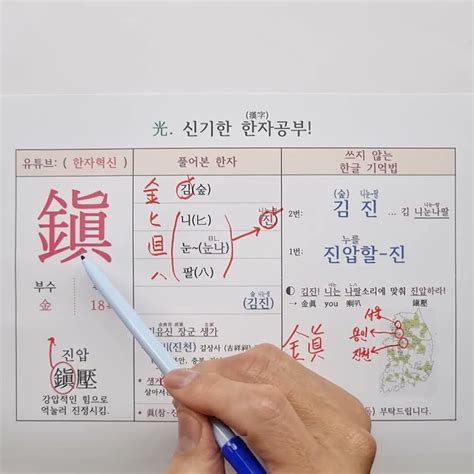 (漢字)
光. 신기한 한자공부!
유튜브: ( 한자혁신 )
풀어본 한자
쓰지 않는
한글 기억법
鎭
부수
金
18
진압
鎭壓
강압적인 힘으로
억눌러 진정시킴.
金 김(숲)
匕 니(匕)
눈~(눈나)
八 팔(八)
진
(김진)
장군 생가
김상사 (吉祥祠)
(숲) 니눈팔
2번: 김 진 ... 김 니눈나팔
누를
1번: 진압할-진
김진! 니는 나팔소리에 맞춰 진압하라!
→ 金眞 you 喇叭 鎭壓
金眞
서울
용인
진천
부탁드립니다.